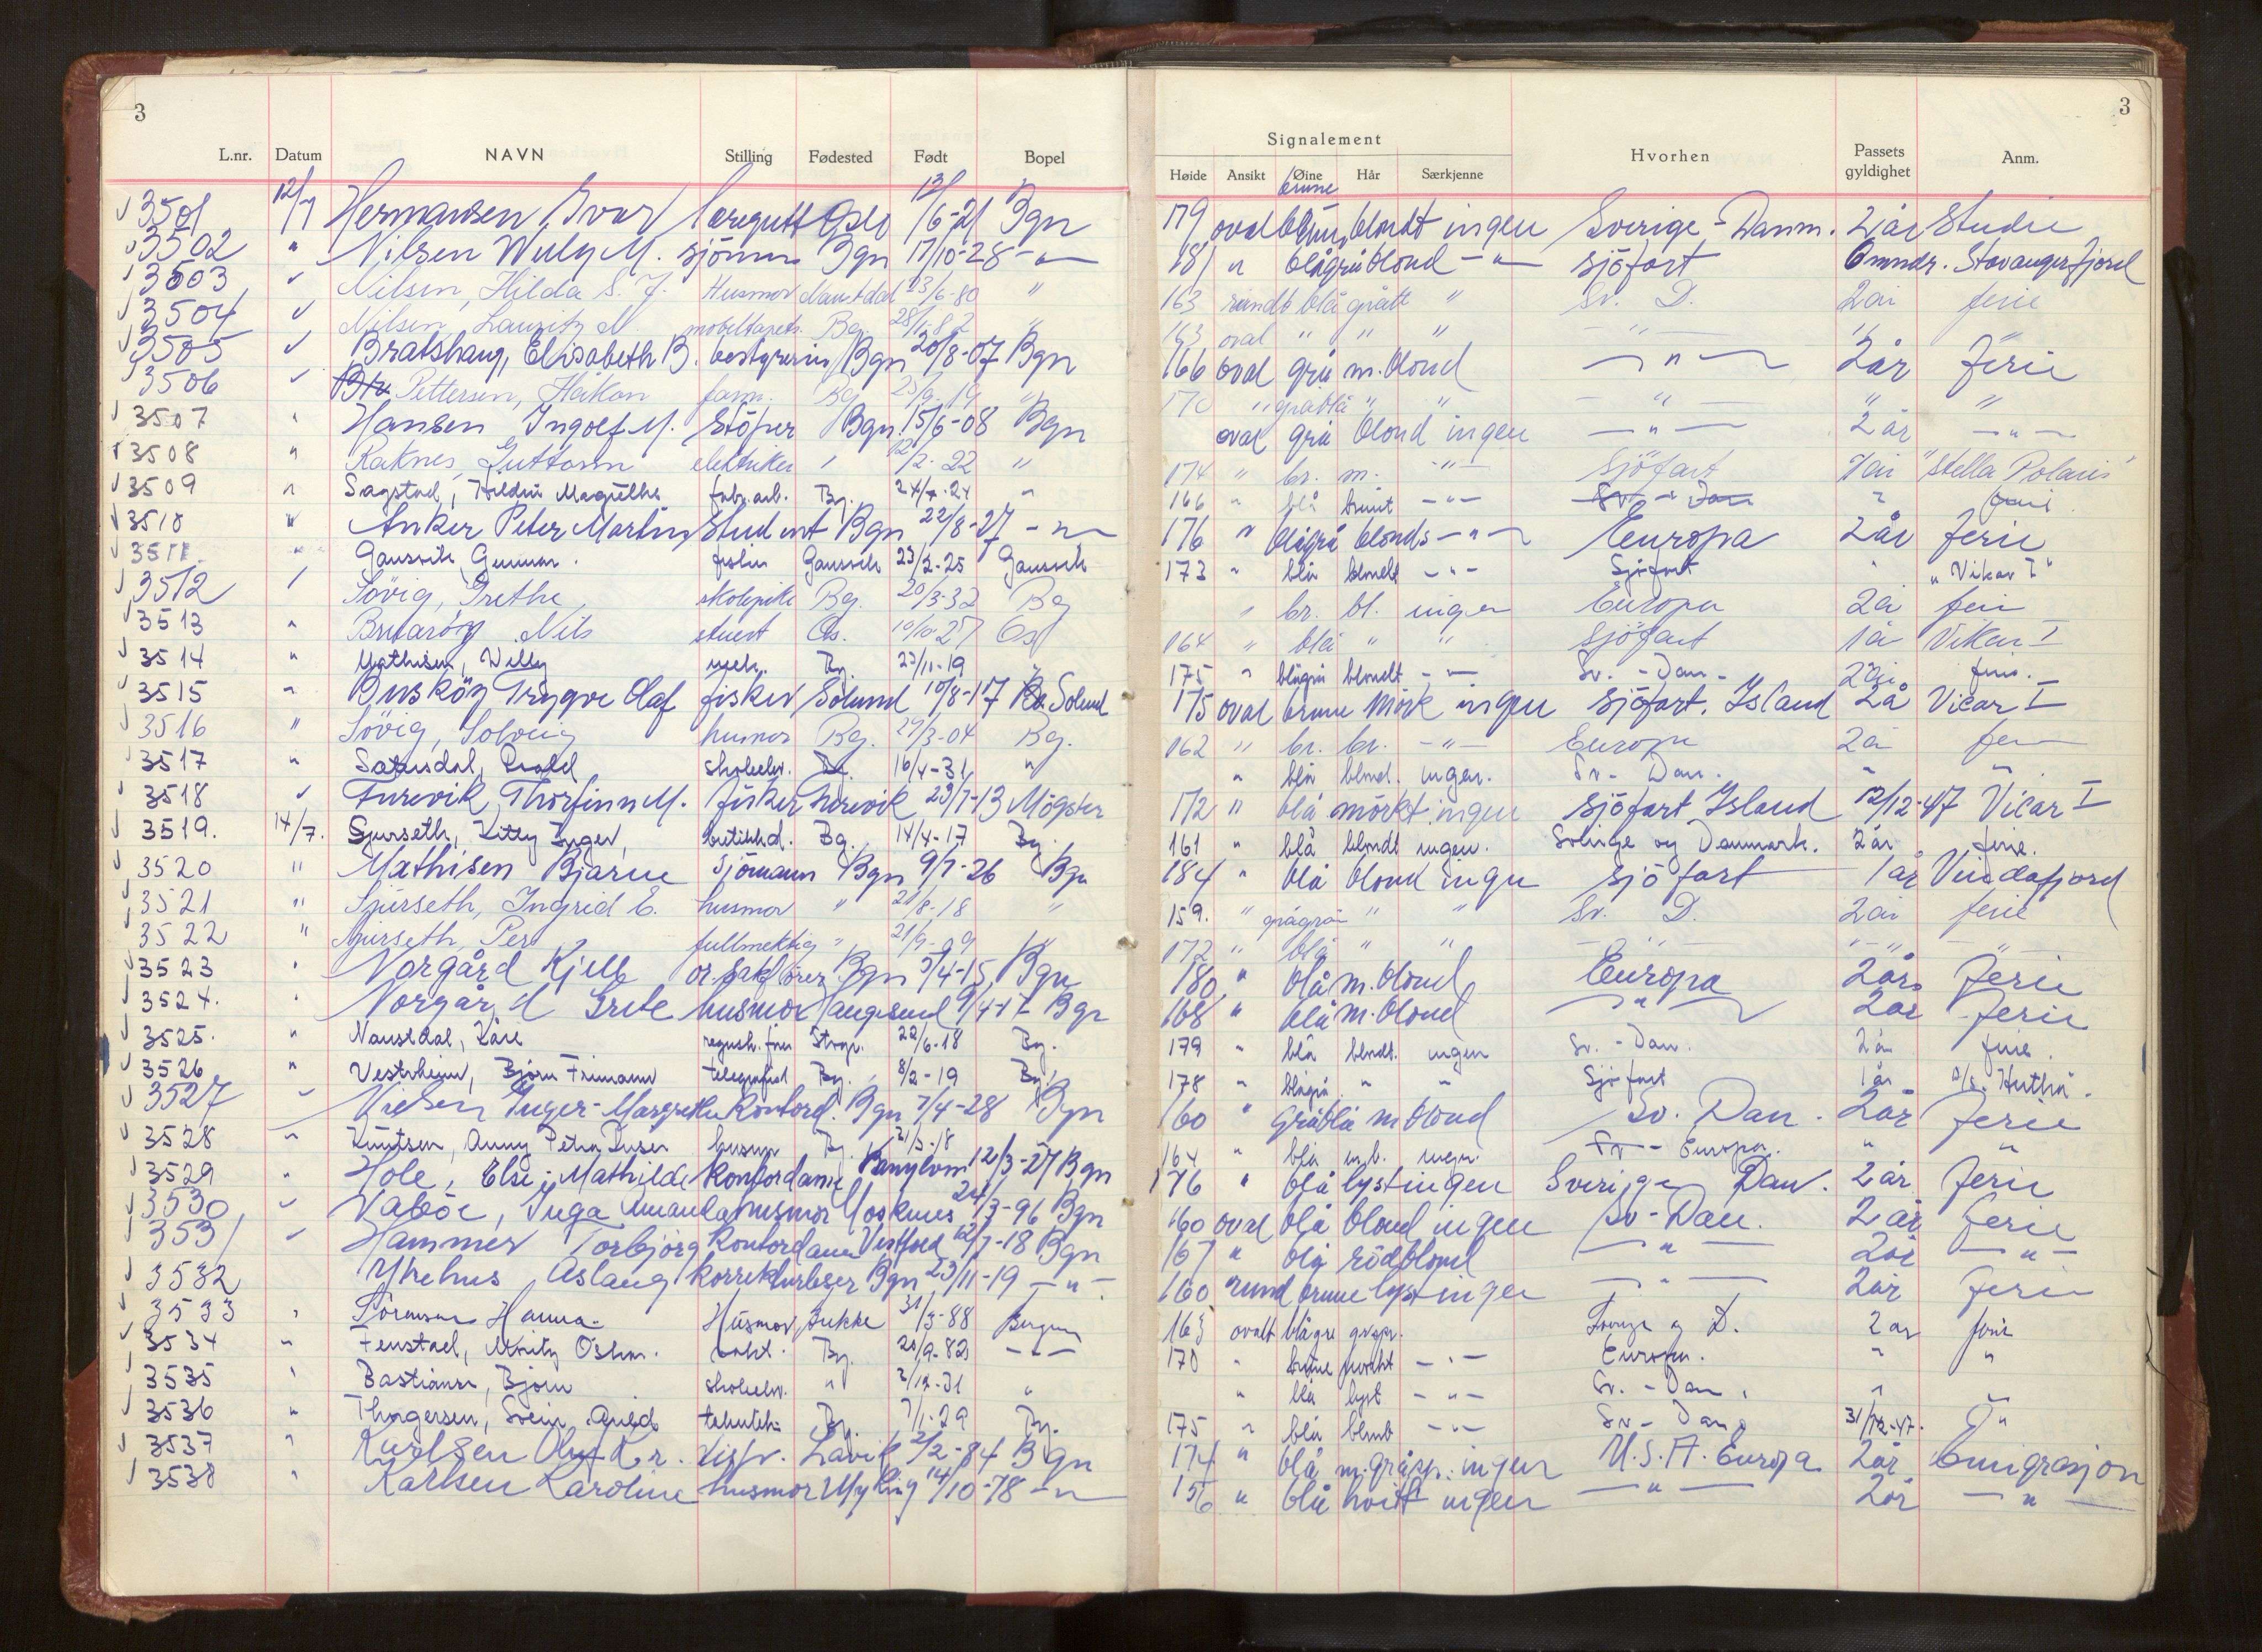 3 3
Signalement
L.nr. Datum NAVN Stilling Fødested Født Bopel Høide Ansikt Øine Hår Særkjenne Hvorhen Passets gyldighet Anm.
brune
3501 12/7 Hermansen, Ivar Oslo 13/6-21 Bgn 179 oval blondt ingen Sverige - Danm. 2 år Studie
3502 " Nilsen Willy M. sjömann Bgn 17/10-28 - " - 181 " blågrå blond - " - sjöfart 6 mndr. Stavangerfjord
3503 Nilsen, Hilda S. J. Husmor Naustdal 23/6-80 " 163 rundt blå grått " Sv. D. 2 år ferie
3504 Nilsen, Lauritz N. møbeltapets. Bg. 28/1-82 " 163 oval " " " - " - " "
3505 Bratshaug, Elisabeth B. bestyrerin Bgn 20/8-07 Bgn 166 oval grå m. blond - " - 2 år ferie
3506 Pettersen, Håkon Bg 25/9-19 " 170 " gråblå " " - " - " "
3507 Hansen Ingolf M. Stöper Bgn 15/6-08 Bgn oval grå blond ingen - " - 2 år - " -
3508 " Raknes, Guttorm elektriker " 12/2-22 " 174 " br. m. - " - Sjöfart 1 år "Stella Polaris"
3509 " Sagstad, Magrethe fabr.arb. Bg. 24 " 166 " blå brunt - " - Sv. - Dan " ferie
3510 " Anker Peter Martin Student Bgn 22/8-27 - " - 176 " blågrå blonds - " - Europa 2 år ferie
3511 " Gaasvik, Gunnar. fisker Gaasvik 23/2-25 Gaasvik 173 " blå blondt - " - Sjöfart " "Vikar I"
3512 Sövig, Grethe skolepike Bg. 20/3-32 Bg " br. bl. ingen Europa 2 å ferie
3513 " Nils stuert Os. 10/10-27 Os 164 " blå " " Sjöfart 1 å Vikar I
3514 " Mathisen, Willy mek. Bg. 23/11-19 175 " blågrå blondt - " - Sv. - Dan - 2 år ferie.
3515 " Busköy Trygve Olaf fisker Solund 10/8-17 Solund 175 oval brune mörk ingen sjöfart. Island 2 å Vicar I
3516 " Sövig, Solveig husmor Bg. 29/3-04 Bg. 162 " br. br. - " - Europa 2 å ferie
3517 " skoleelev. Bg. 16/4-31 " " blå blond. ingen. Sv - Dan. " "
3518 Furevik, Thorfinn M. fisker Furevik 23/7-13 Mögster 172 " blå mörkt ingen sjöfart Island 12/12-47 Vicar I
3519. 14/7. Sjurseth, Kitty Inger, butikkd. Bg. 14/4-17 Bg. 161 " blå blondt ingen. Sverige og Danmark. 2 år ferie.
3520 " Mathisen Bjarne Sjömann Bgn 9/7-26 Bgn 184 " blå blond ingen sjöfart 1 år Vindafjord
3521 " Sjurseth, Ingrid E. husmor " 21/8-18 " 159. " grågrön " " Sv. D. 2 år ferie
3522 " Sjurseth, Per fullmektig " 21/9-09 " 172 " blå " " - " - " "
3523 Norgård Kjell or.sakförer Bgn 5/4-15 Bgn 180 " blå m. blond Europa 2 år ferie
3524. Norgård Grete husmor Haugesund 9/4-17 Bgn 168 " blå m. blond - " - 2 år ferie
3525. " Naustdal, Kåre Stvgr. 22/6-18 Bg. 179 " blå blondt. ingen Sv. - Dan. 2 år ferie.
3526 " Vestrheim, Bjørn Frimann telegrafist Bg. 8/2-19 Bg. 178 " blågrå " " Sjöfart 1 år
3527 Nielsen Inger-Margrethe kontord. Bgn 7/4-28 Bgn 160 " gråblå m blond Sv. Dan. 2 år ferie
3528 " Knutsen, Anny Petra husmor Bg. 31/3-18 164 " blå m.b. ingen. Sv - Europa. " "
3529 " Hole, Else Mathilde kontordame 12/3-27 Bgn 176 " blå lyst ingen Sverige Dan. 2 år ferie
3530 Vaböe, Inga husmor 24/3-96 Bgn 160 oval blå blond ingen Sv - Dan. 2 år ferie
3531 Hammer Torbjörg kontordame Vestfold 12/7-18 Bgn 167 " blå rödblond - " - 2 år - " -
3532 Ytrehus Aslaug korrekturleser Bgn 23/11-19 - " - 160 rund brune lyst ingen - " - 2 år ferie
3533 Sörensen Hanna. Husmor 31/3-88 Bergen 163 ovalt blågrå Sverige og D. 2 år ferie
3534 " Bg. 20/9-82 - " - 170 " brune mörkt - " - Europa. " "
3535 Bastiansen, Bjørn skoleelev. " 2/12-31 " " blå lyst - " - Sv. - Dan. " "
3536 " Thorgersen, Svein Bg. 7/1-29 Bg. 175 " blå blond - " - Sv - Dan. 31/12-47. "
3537 " Karlsen Olaf Kr. Lavik 2/2-84 Bgn 174 " blå m. gråspr. ingen U.S.A. Europa 2 år Emigrasjon
3538 " Karlsen Karoline husmor Myking 14/10-78 - " - 156 " blå hvitt ingen - " - 2 år - " -